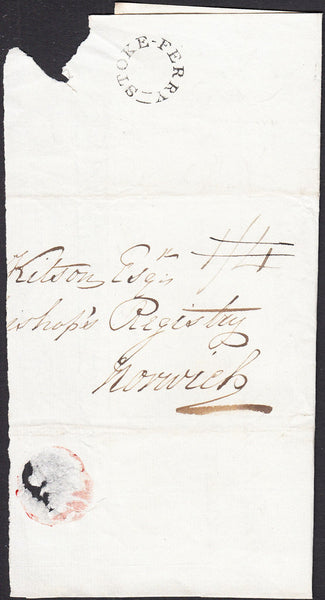 STOKE-FERRY
1/4
Kitson Esqr
ishop's Registry
Norwich